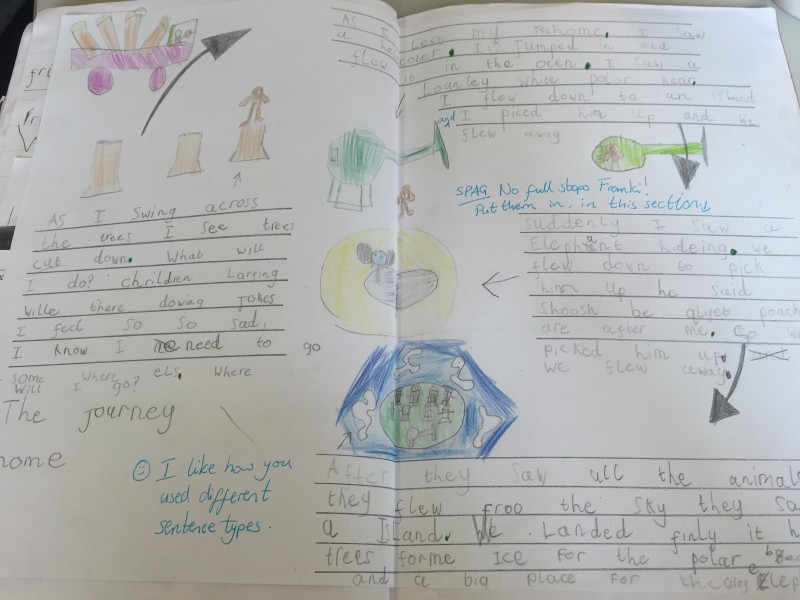 AS I Swing across
the trees I see trees
cut down. What will
I do? chrildren Larfing
wille there dowing jokes
I feel so so sad,
I know I need to go
some where els, Where
will I go?
The journey
home
☺ I like how you
used different
sentence types.
AS I Lest my rahome, I saw
a coter. It Jumped in and
flew it in the ocen. I saw a
Loanley white polar bear.
I flew down to an island
and I piced him up and we
flew away
SPAG No full stops Franki!
Put them in, in this section
Suddenly I saw a
Elephant hideing. we
flew down to pick
him up he said
Shoosh be qiyet poach
are after me. So we
picked him up.
we flew away.
After they saw all the animals
they flew froo the sky they sa
a Island. We Landed finly it h
trees forme ICE for the polar bear
and a big place for the Elep